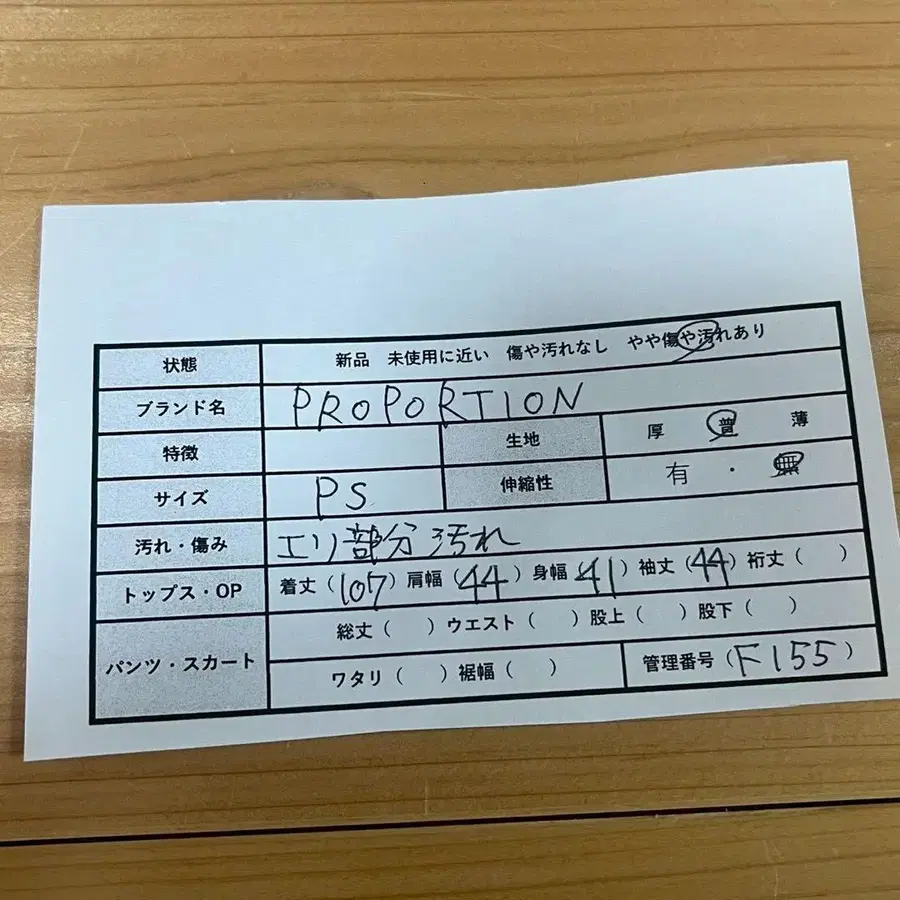 状態 新品 未使用に近い 傷や汚れなし やや傷や汚れあり
ブランド名 PROPORTION
特徴 生地 厚 普 薄
サイズ PS 伸縮性 有・無
汚れ・傷み エリ部分汚れ
トップス・OP 着丈(107) 肩幅(44) 身幅(41) 袖丈(44) 裄丈( )
パンツ・スカート 総丈( ) ウエスト( ) 股上( ) 股下( )
ワタリ( ) 裾幅( ) 管理番号(F155)